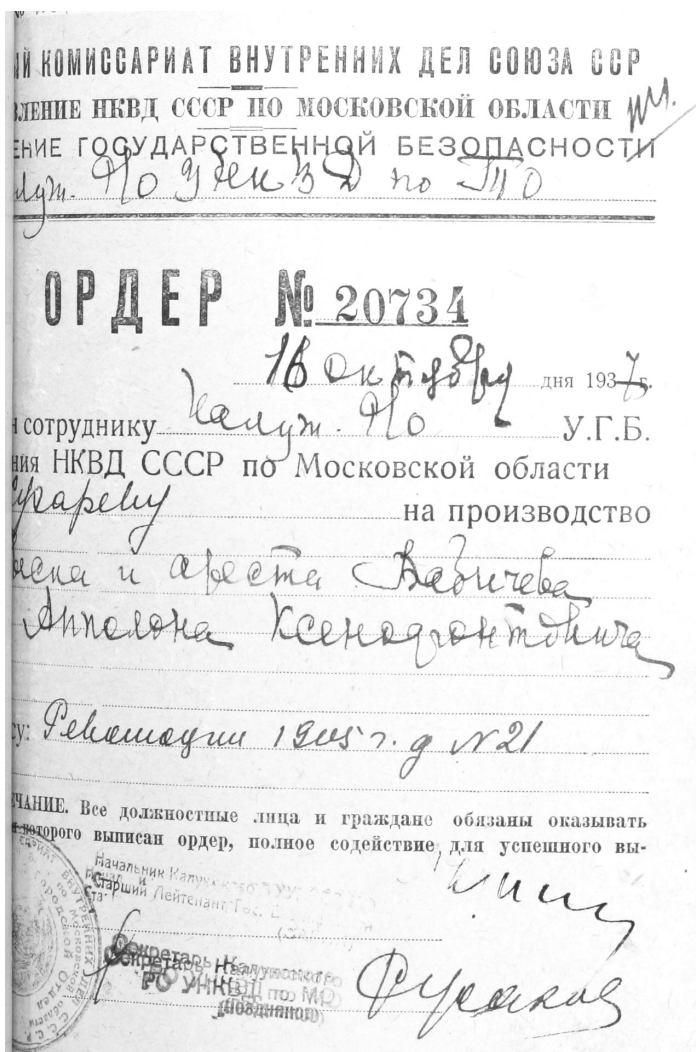 ЫЙ КОМИССАРИАТ ВНУТРЕННИХ ДЕЛ СОЮЗА ССР
ВЛЕНИЕ НКВД СССР ПО МОСКОВСКОЙ ОБЛАСТИ
ЕНИЕ ГОСУДАРСТВЕННОЙ БЕЗОПАСНОСТИ
по ТО
ОРДЕР № 20734
16 октября дня 1937 г.
сотруднику Калуж. РО У.Г.Б.
ния НКВД СССР по Московской области
на производство
ыска и ареста Бабичева
Апполона Ксенофонтовича
су: Революции 1905 г. д N 21
ЕЧАНИЕ. Все должностные лица и граждане обязаны оказывать
которого выписан ордер, полное содействие для успешного вы-
Начальник
Старший Лейтенант Гос.
Секретарь Калужского
РО УНКВД по МО